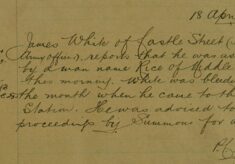 18 Apr
James White of Castle Street (
Army officer), reports that he was as
by a man name Rice of
this morning. White was bleed
the month when he came to th
Station. He was advised to
proceedings by Summons for a